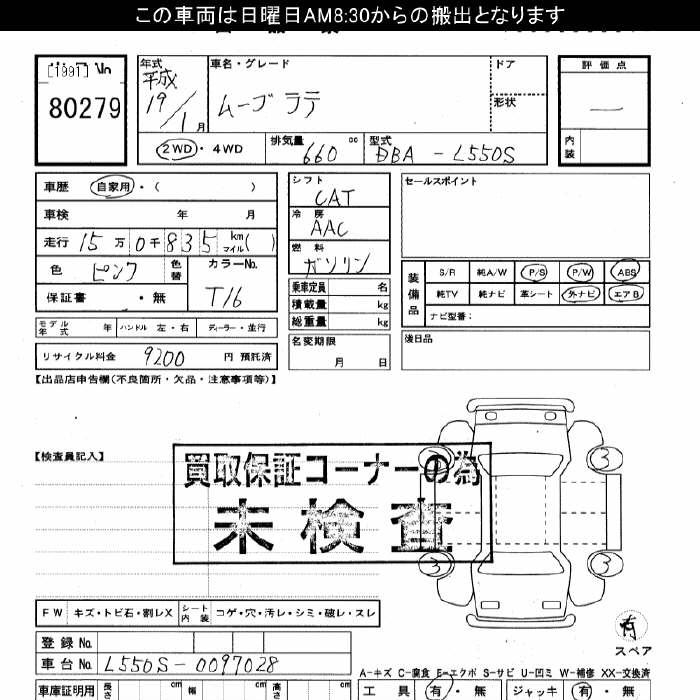 この車両は日曜日AM8:30からの搬出となります
[1991] No
80279
年式
平成
19/1月
車名・グレード
ムーブ ラテ
ドア
形状
評価点
—
内装
2WD・4WD
排気量 660 cc
型式 DBA - L550S
車歴 自家用・( )
車検 年 月
走行 15万0千835 km マイル( )
色 ピンク 色替
カラーNo.
T16
保証書 ・無
モデル年式 年 ハンドル 左・右 ディーラー・並行
リサイクル料金 9200 円 預託済
シフト
CAT
冷房
AAC
燃料
ガソリン
乗車定員 名
積載量 kg
総重量 kg
名変期限
月 日
セールスポイント
装備品
S/R 純A/W P/S P/W ABS
純TV 純ナビ 革シート 外ナビ エアB
ナビ型番:
後日品
【出品店申告欄(不良箇所・欠品・注意事項等)】
【検査員記入】
買取保証コーナーの為
未検査
3 3
3 3
有
スペア
FW キズ・トビ石・割レX シート内装 コゲ・穴・汚レ・シミ・破レ・スレ
登録No.
車台No. L550S-0097028
A-キズ C-腐食 E-エクボ S-サビ U-凹ミ W-補修 XX-交換済
車庫証明用 長さ cm 幅 cm 高さ cm
工具 有・無 ジャッキ 有・無